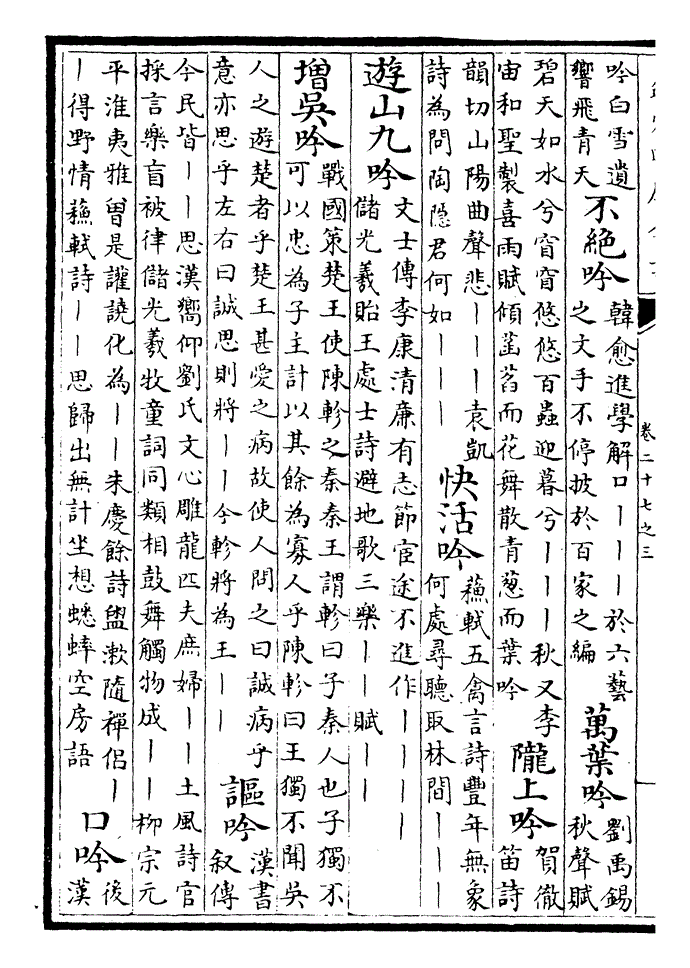 卷二十七之三
吟白雪遺
響飛青天
不絶吟
韓愈進學解口｜｜｜於六藝
之文手不停披於百家之編
萬葉吟
劉禹錫
秋聲賦
碧天如水兮窅窅悠悠百蟲迎暮兮｜｜｜秋又李
宙和聖製喜雨賦傾菡萏而花舞散青葱而葉吟
隴上吟
賀徹
笛詩
韻切山陽曲聲悲｜｜｜袁凱
詩為問陶隱君何如｜｜｜
快活吟
蘇軾五禽言詩豐年無象
何處尋聽取林間｜｜｜
遊山九吟
文士傳李康清廉有志節宦途不進作｜｜｜｜
儲光羲貽王處士詩避地歌三樂｜｜賦｜｜
增吳吟
戰國策楚王使陳軫之秦秦王謂軫曰子秦人也子獨不
可以忠為子主計以其餘為寡人乎陳軫曰王獨不聞吳
人之遊楚者乎楚王甚愛之病故使人問之曰誠病乎
意亦思乎左右曰誠思則將｜｜今軫將為王｜｜
謳吟
漢書
叙傳
今民皆｜｜思漢嚮仰劉氏文心雕龍匹夫庶婦｜｜土風詩官
採言樂盲被律儲光羲牧童詞同類相鼓舞觸物成｜｜柳宗元
平淮夷雅曽是讙譊化為｜｜朱慶餘詩盥漱隨禪侶｜
｜得野情蘇軾詩｜｜思歸出無計坐想蟋蟀空房語
口吟
後
漢